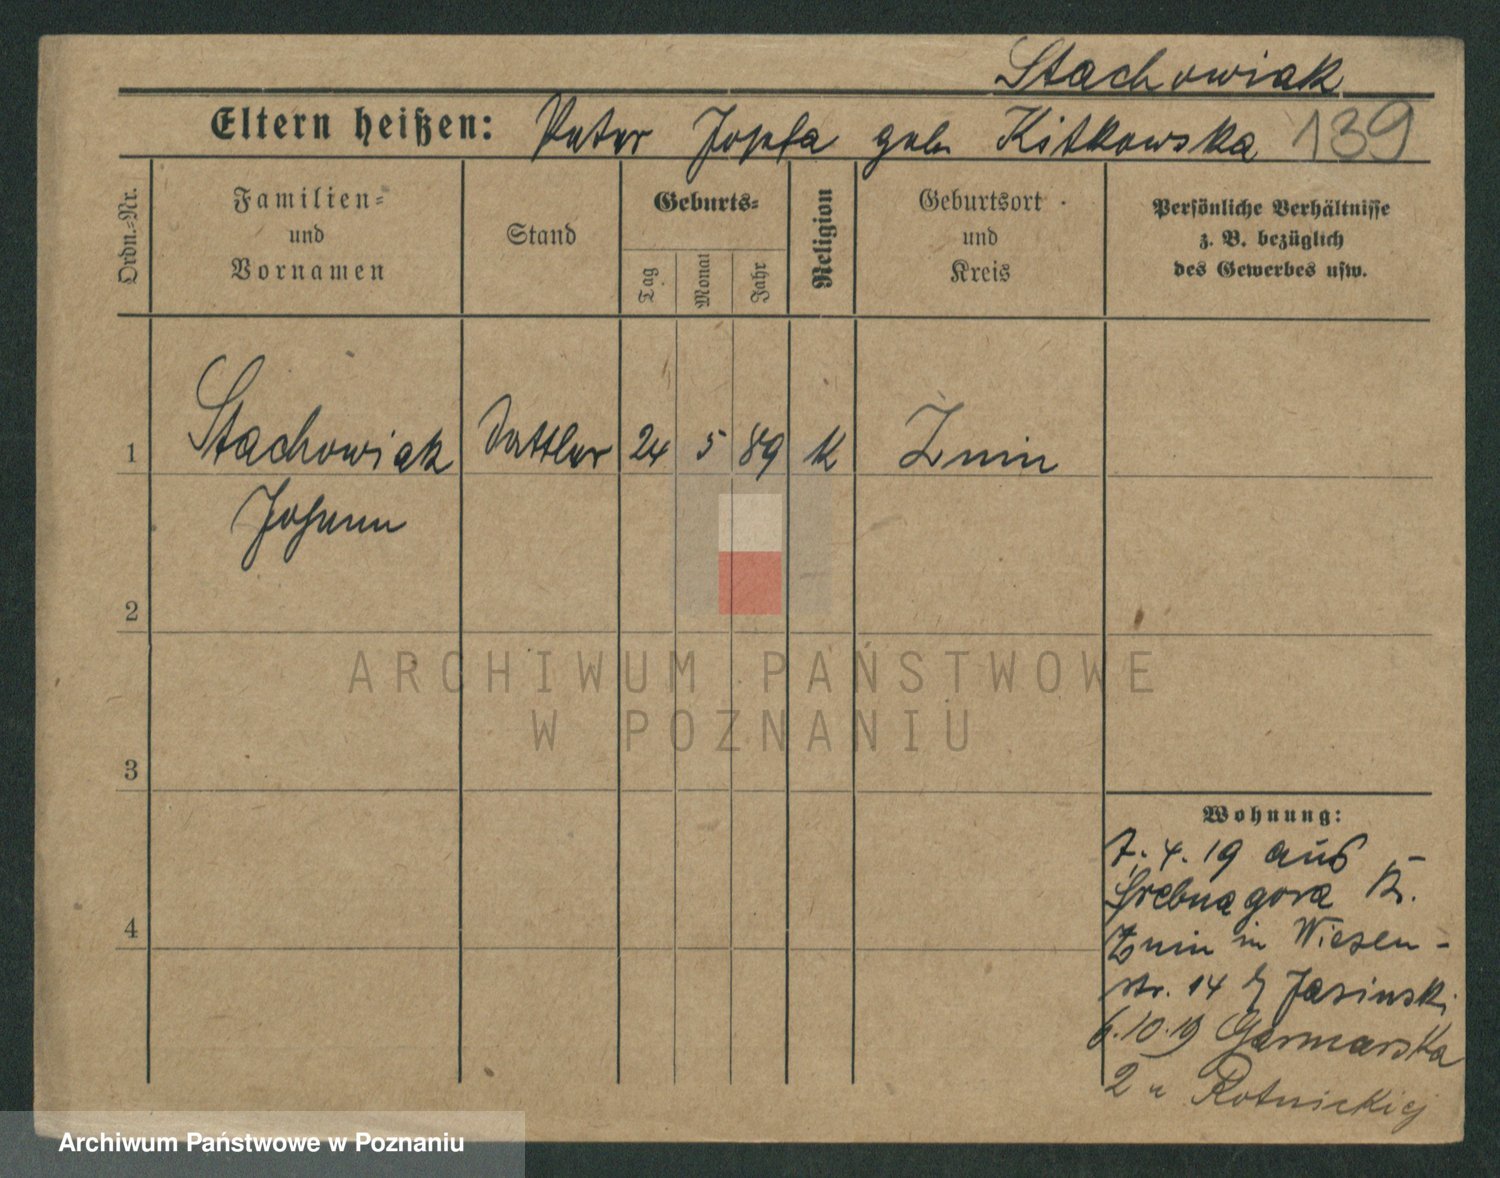 Stachowiak
Eltern heißen: Peter Josefa geb Kitkowska 139
Ordn.-Nr.
Familien-
und
Vornamen
Stand
Geburts-
Tag
Monat
Jahr
Religion
Geburtsort
und
Kreis
Persönliche Verhältnisse
z. B. bezüglich
des Gewerbes usw.
1 Stachowiak Sattler 24 5 89 K Znin
Johann
2
3
4
Wohnung:
7. 4. 19 aus
Srebnagora Kr.
Znin in Wiesen-
str. 14 Jasinski
6.10.19 Garmarska
2 u Rotnickiej
ARCHIWUM PAŃSTWOWE
W POZNANIU
Archiwum Państwowe w Poznaniu